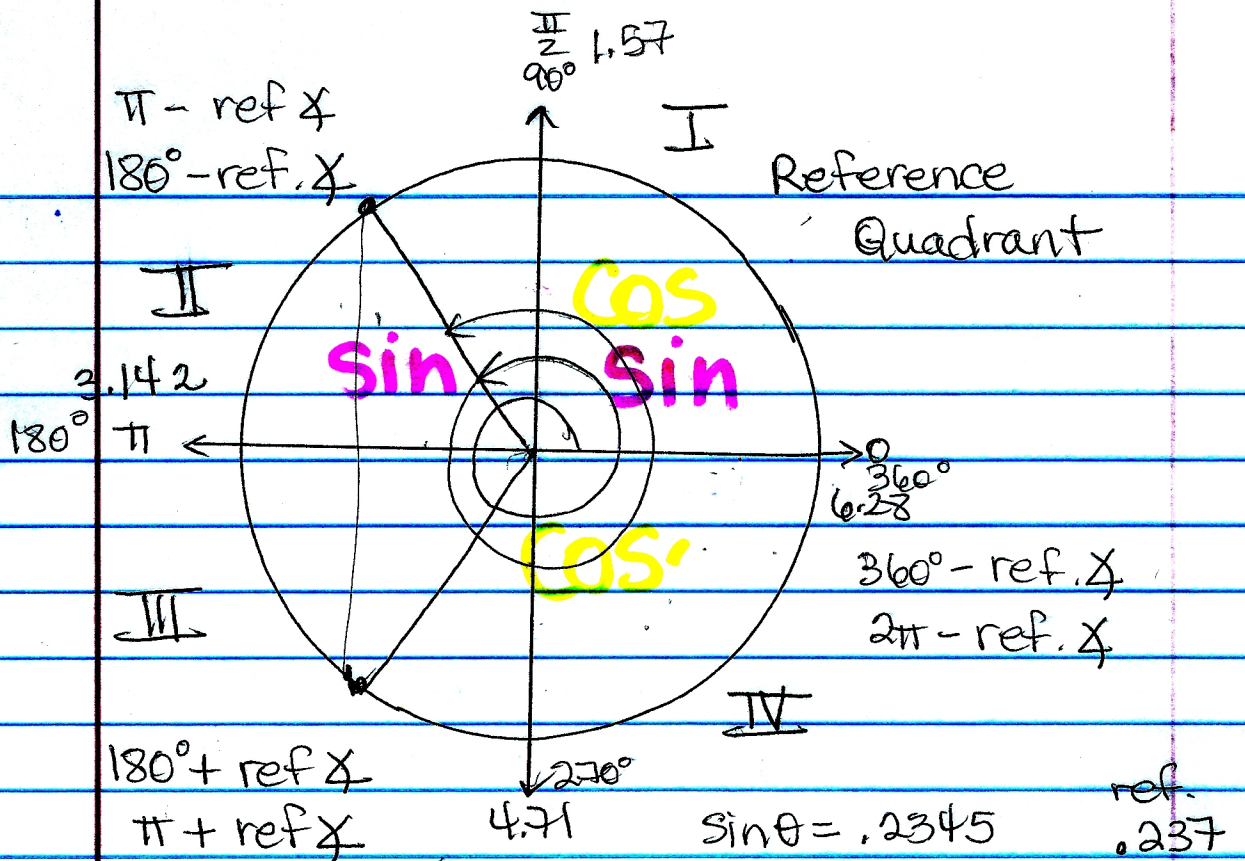 π/2 1.57
90°
I
π - ref ∡
180° - ref. ∡
Reference
Quadrant
II
Cos
sin
Sin
3.142
180° π
0
360°
6.28
cos
360° - ref. ∡
2π - ref. ∡
III
IV
180° + ref ∡
π + ref ∡
270°
4.71
sinθ = .2345
ref.
.237